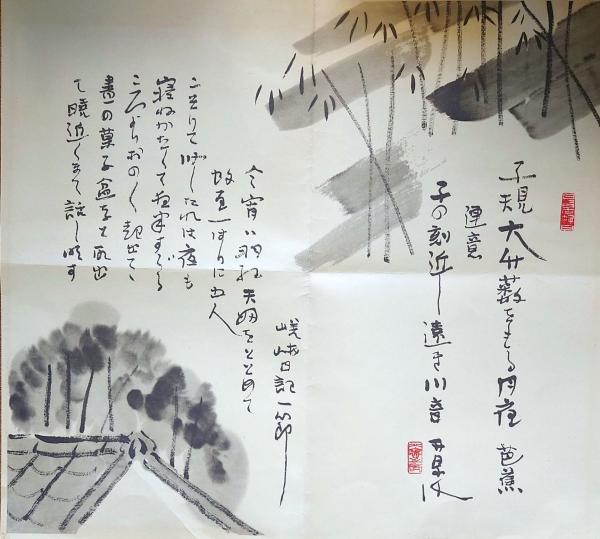 子規大竹藪をもる月夜 芭蕉
連意
子の刻近し遠き川音
嵯峨日記一節
今宵ハ羽紅夫婦をとどめて
蚊屋一はりに五人
こぞりて臥したれは夜も
寝ねかたくて夜半すぐる
ころよりおの〱起出て
晝の菓子盆など取出
て暁近くまて話し明す